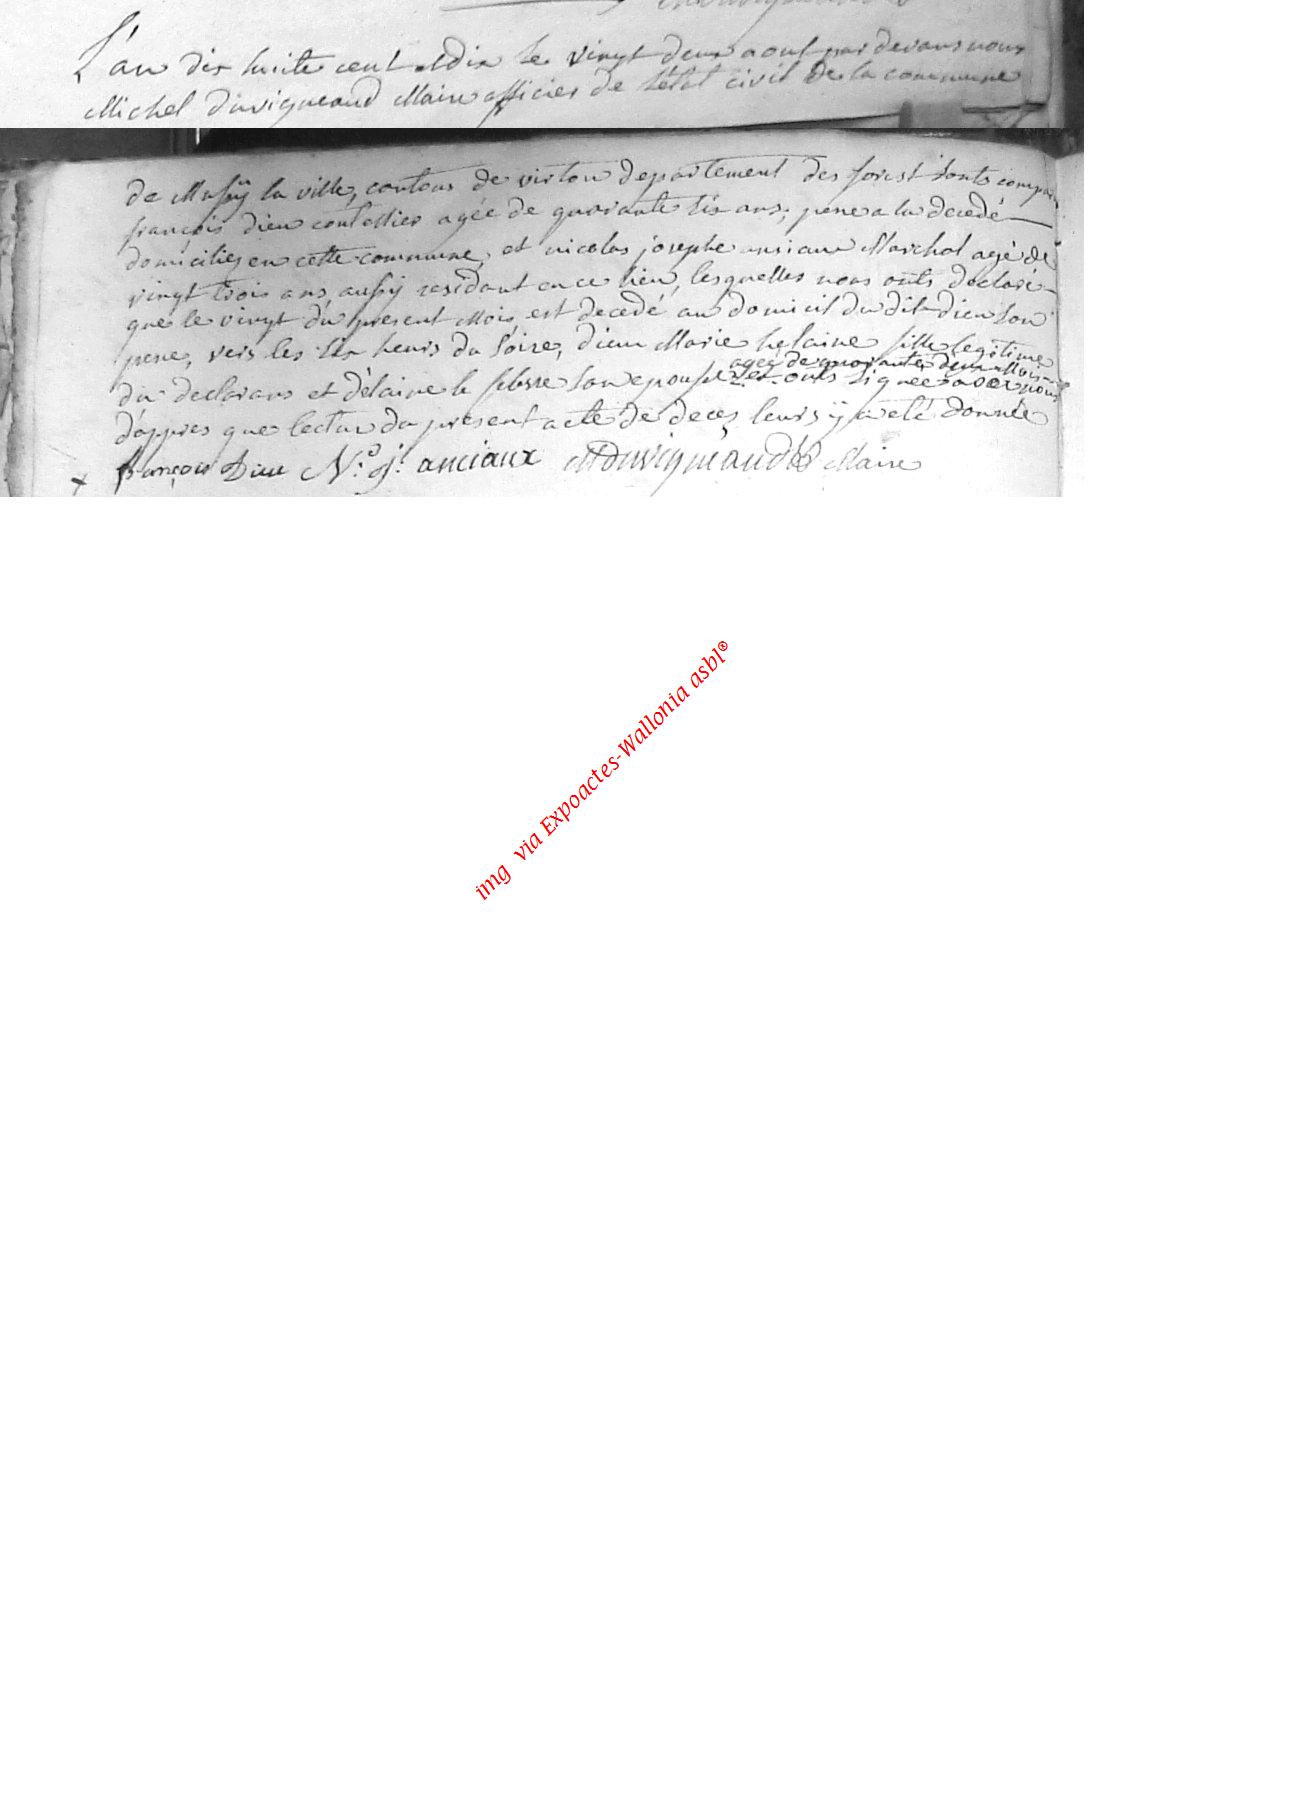 L'an dix huite cent et dix le vingt deux aout par devans nous
Michel duvigneaud Maire officier de l'état civil de la commune
de Mussÿ la ville, cantons de virton departement des forest sonts compar
françois dieu coutellier agée de quarante six ans, pere a la decedé
domiciliez en cette commune, et nicolas josephe ansiaux Marchal agé de
vingt trois ans aussÿ residant en ce lieu, lesquelles nous onts declaré
que le vingt du present Mois est decedé au domicil du dit dieu son
pere, vers les six heurs du soire, dieu Marie helaine fille legitime
agée de quarante deux Mois
du declarans et d'élaine le febvre son epousse et onts signée avec nous
d'appres que lectur du present acte de deces leurs ÿ a été donnée
françois Dieu N. J. anciaux MDuvigneaud Maire
img via Expoactes-Wallonia asbl®